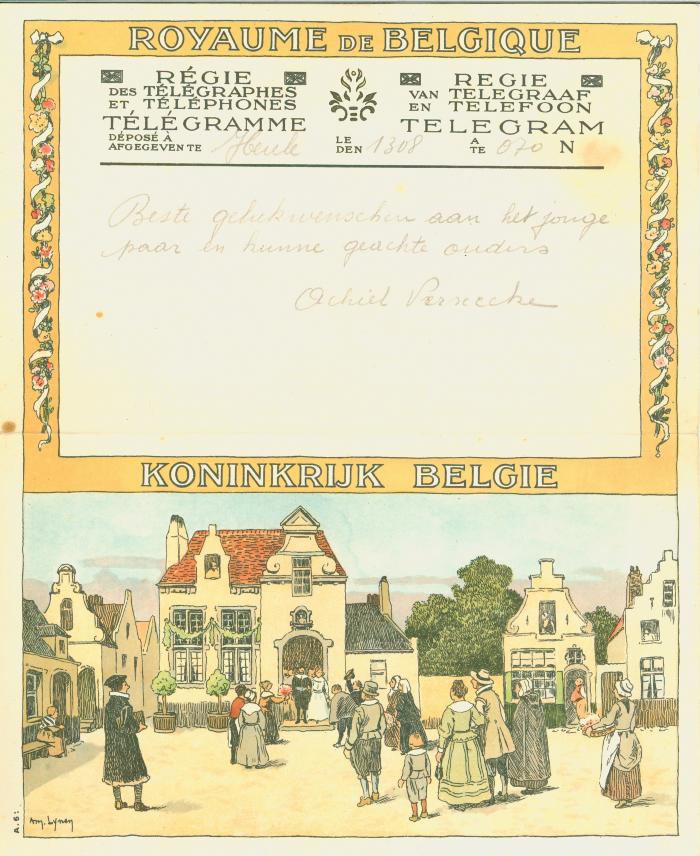 ROYAUME DE BELGIQUE
RÉGIE
DES TÉLÉGRAPHES
ET TÉLÉPHONES
TÉLÉGRAMME
REGIE
VAN TELEGRAAF
EN TELEFOON
TELEGRAM
DÉPOSÉ À
AFGEGEVEN TE Heule
LE
DEN 1308
A
TE 070 N
Beste gelukwenschen aan het jonge
paar en hunne geachte ouders
Achiel Versecke
KONINKRIJK BELGIE
A.6:
Am. Lynen